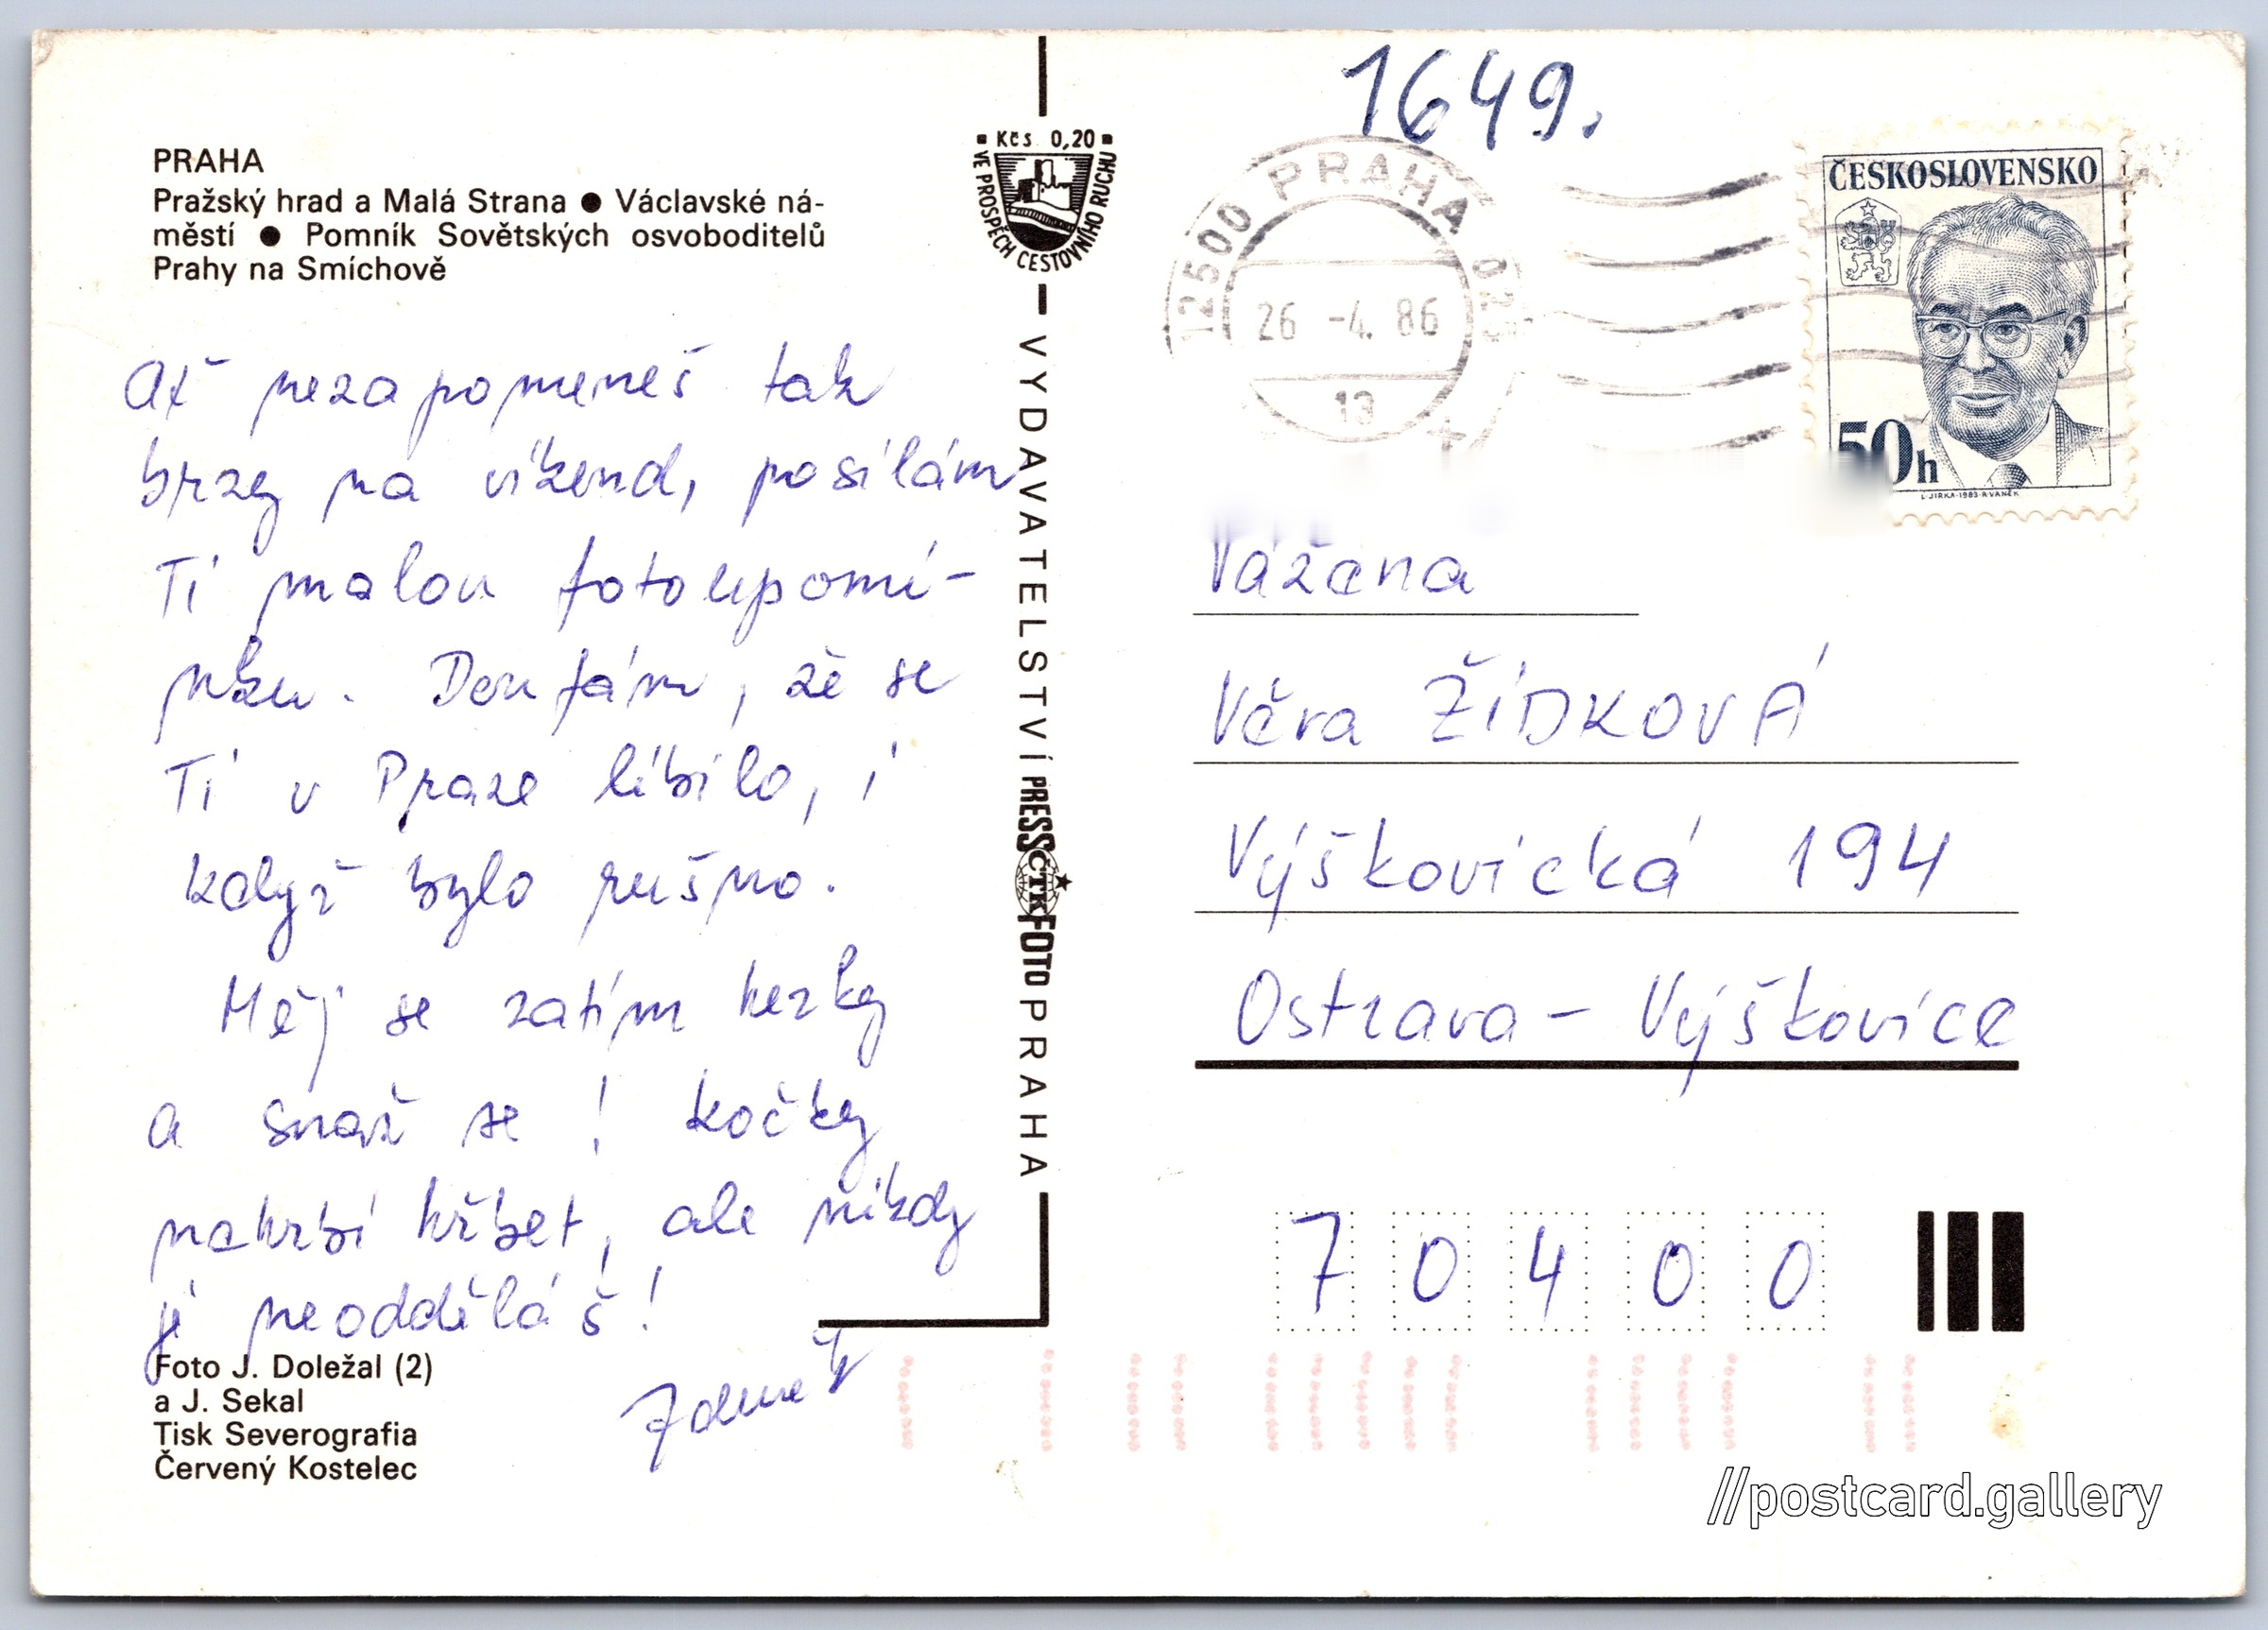 PRAHA
Pražský hrad a Malá Strana ● Václavské ná-
městí ● Pomník Sovětských osvoboditelů
Prahy na Smíchově
Ať nezapomeneš tak
brzy na víkend, posílám
Ti malou fotoupomí-
nku. Doufám, že se
Ti v Praze líbilo, i
když bylo rušno.
Měj se zatím hezky
a snaž se! kočky
nahrbí hřbet, ale nikdy
ji neodděláš!
Zdeněk
Foto J. Doležal (2)
a J. Sekal
Tisk Severografia
Červený Kostelec
Kčs 0,20
VE PROSPĚCH CESTOVNÍHO RUCHU
VYDAVATELSTVÍ PRESSFOTO PRAHA
ČTK
1649.
12500 PRAHA 025
26 -4. 86
13
ČESKOSLOVENSKO
50h
L.JIRKA-1983-R.VANĚK
Vážená
Věra ŽÍDKOVÁ
Výškovická 194
Ostrava - Výškovice
7 0 4 0 0
//postcard.gallery